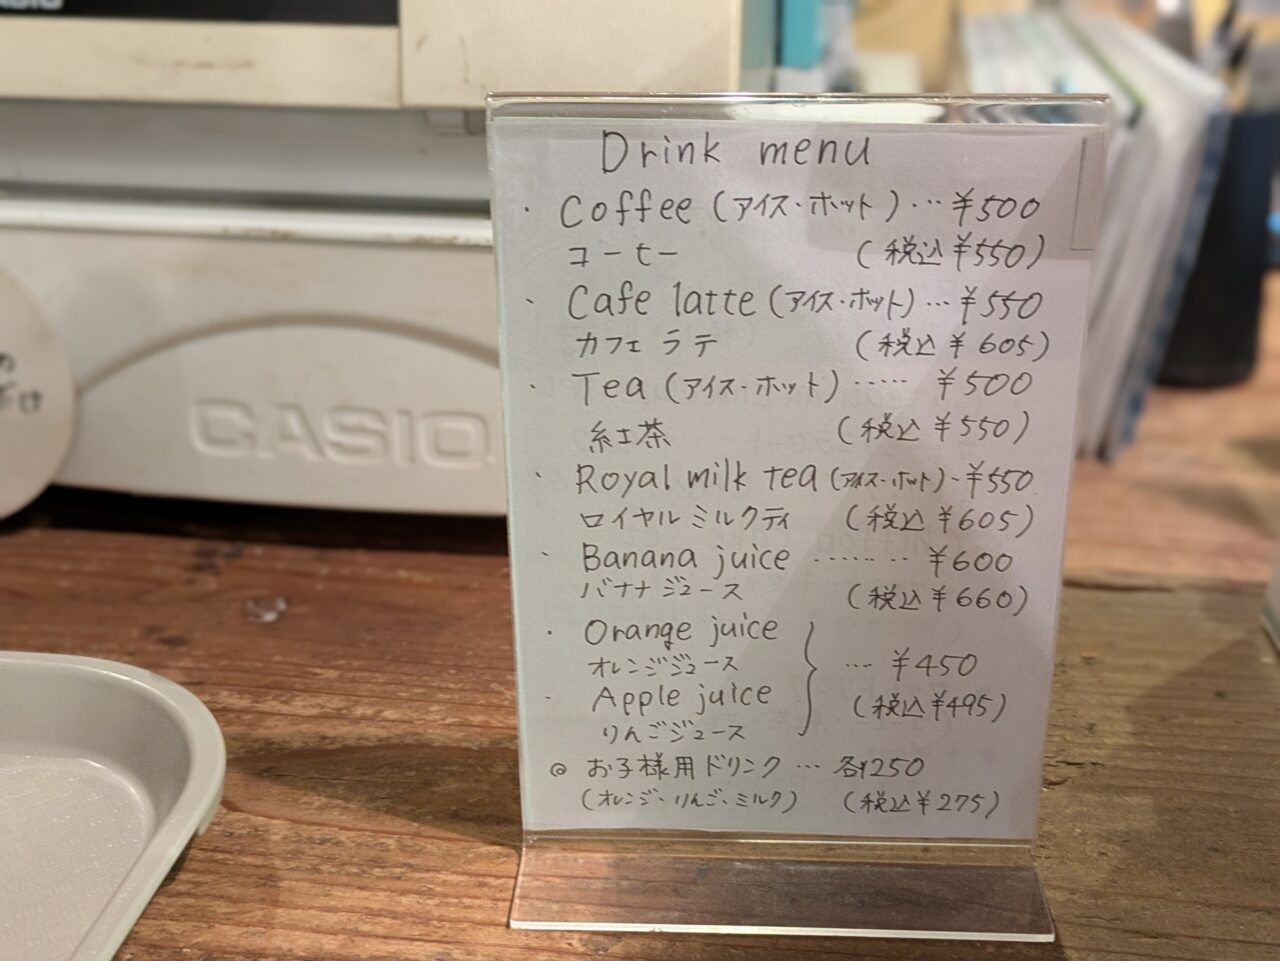 CASIO
CASIO
Drink menu
・ Coffee (アイス・ホット) … ¥500
コーヒー (税込¥550)
・ Cafe latte (アイス・ホット) … ¥550
カフェラテ (税込¥605)
・ Tea (アイス・ホット) ‥‥‥ ¥500
紅茶 (税込¥550)
・ Royal milk tea (アイス・ホット) - ¥550
ロイヤルミルクティ (税込¥605)
・ Banana juice ‥‥‥‥ ¥600
バナナジュース (税込¥660)
・ Orange juice
オレンジジュース … ¥450
・ Apple juice (税込¥495)
りんごジュース
◎ お子様用ドリンク … 各¥250
(オレンジ・りんご・ミルク) (税込¥275)